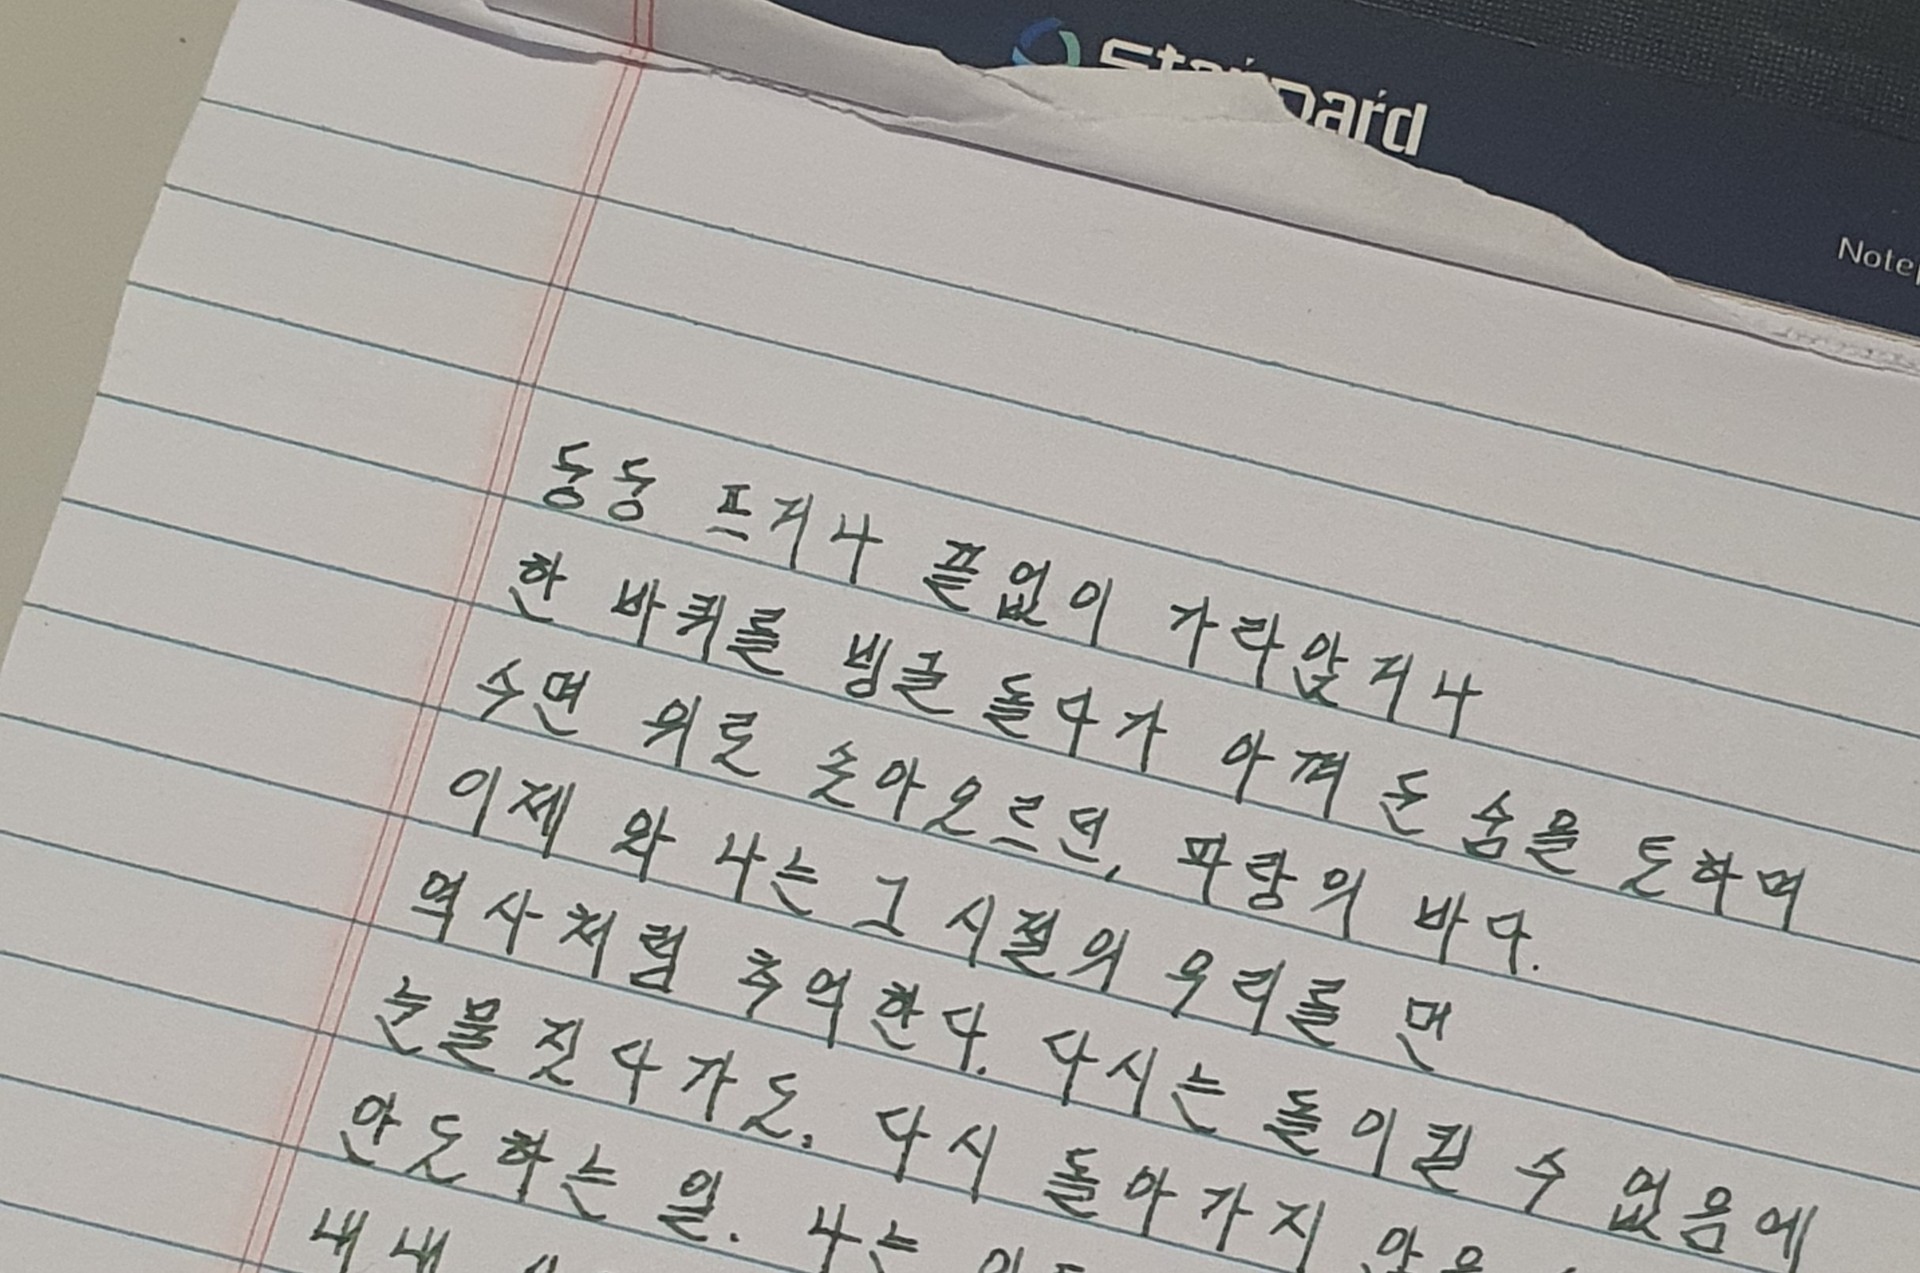 동동 뜨거나 끝없이 가라앉거나
한 바퀴를 빙글 돌다가 아껴 둔 숨을 토하며
수면 위로 솟아오르던, 파랑의 바다.
이제 와 나는 그 시절의 우리를 먼
역사처럼 추억한다. 다시는 돌이킬 수 없음에
눈물 짓다가도, 다시 돌아가지 않음
안도하는 일. 나는
내내